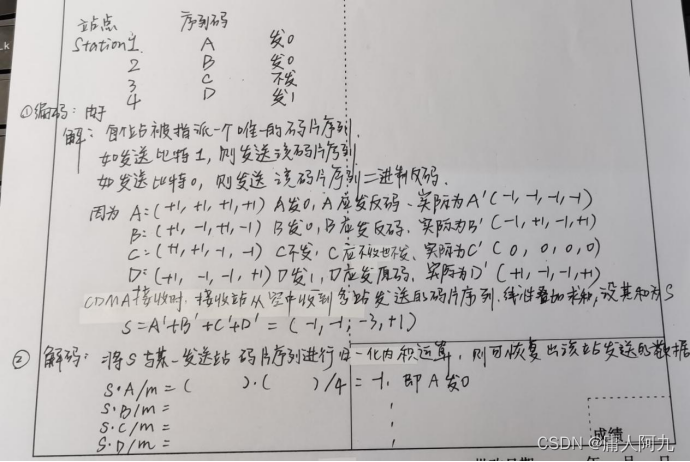 站点 序列码
Station1 A 发0
2 B 发0
3 C 不发
4 D 发1
①编码: 由于
解: 每个站被指派一个唯一的码片序列.
如发送比特1, 则发送该码片序列
如发送比特0, 则发送该码片序列二进制反码.
因为 A=(+1, +1, +1, +1) A发0, A应发反码. 实际为A'(-1, -1, -1, -1)
B=(+1, -1, +1, -1) B发0, B应发反码. 实际为B'(-1, +1, -1, +1)
C=(+1, +1, -1, -1) C不发, C应不收也不发. 实际为C'(0, 0, 0, 0)
D=(+1, -1, -1, +1) D发1, D应发原码. 实际为D'(+1, -1, -1, +1)
CDMA接收时, 接收站从空中收到各站发送的码片序列. 线性叠加求和, 设其和为S
S=A'+B'+C'+D' = (-1, -1, -3, +1)
② 解码: 将S与某一发送站码片序列进行归一化内积运算, 则可恢复出该站发送的数据
S·A/m = ( )·( )/4 = -1. 即A发0
S·B/m =
S·C/m =
S·D/m =
成绩
CSDN @庸人阿九